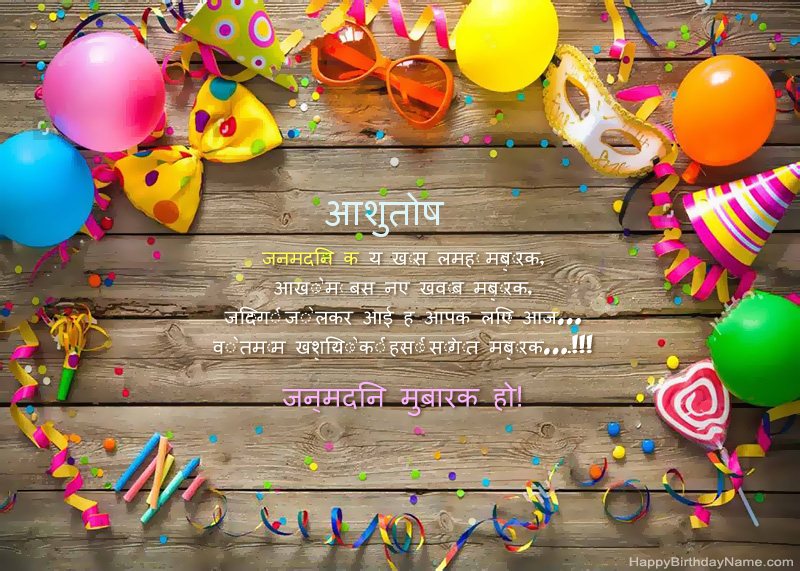 आशुतोष
जनमदिन क य खास लमहा मुबारक,
आखो म बस नए खवाब मुबारक,
जिंदगी जो लेकर आई ह आपक लिए आज...
वो तमाम खुशियो की हसी सौगात मुबारक....!!!
जन्मदिन मुबारक हो!
HappyBirthdayName.com